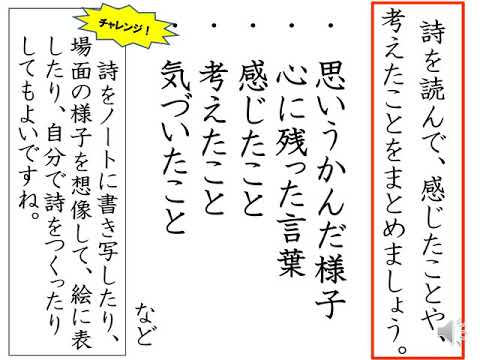 詩を読んで、感じたことや、
考えたことをまとめましょう。
・思いうかんだ様子
・心に残った言葉
・感じたこと
・考えたこと
・気づいたこと
など
チャレンジ！
詩をノートに書き写したり、
場面の様子を想像して、絵に表
したり、自分で詩をつくったり
してもよいですね。